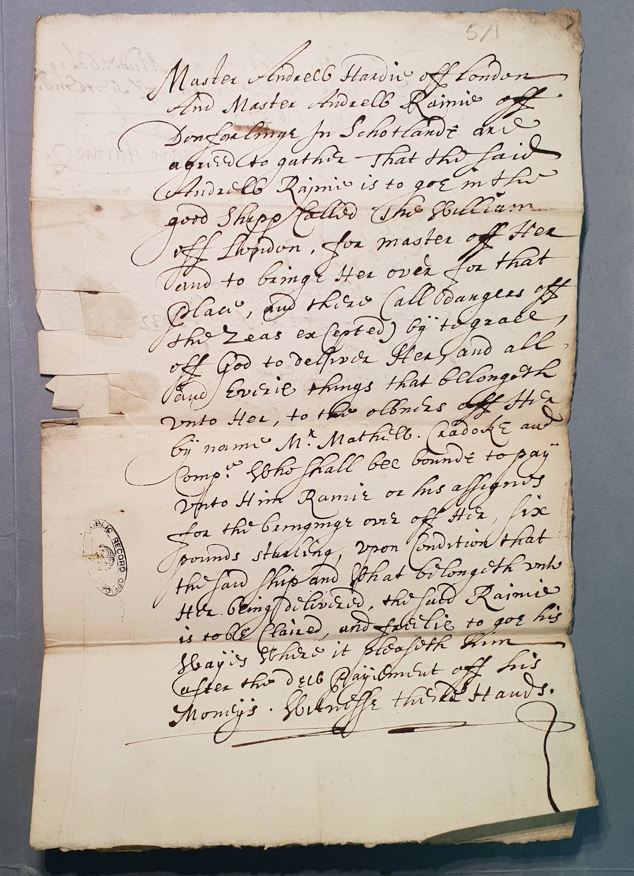 571
Master Andrew Hardie off London
And Master Andrew Ramie off
Donforlinge In Schotlande are
agreed to gather That the said
Andrew Ramie is to goe in the
good Shipp Called The William
off London, for master off Her
and to bringe Her over for that
Place, and there (all dangers off
the Zeas excepted) by te grace
off God to deliver Her, and all
and Everie things that belongeth
vnto Her, to the owners off Her
by name Mr. Mathew. Cradoke and
Compe. Who shall bee bounde to pay
vnto Him Ramie or his assignes
for the bringinge over off Her, six
pounds starling, vpon Condition that
the said ship and What belongeth vnto
Her being delivered, the said Ramie
is to be Claired, and freelie to goe his
Wayes Where it pleaseth him
after the dew Payement off his
Moneys. Witnesse there Hands.
PUBLIC RECORD OFFICE